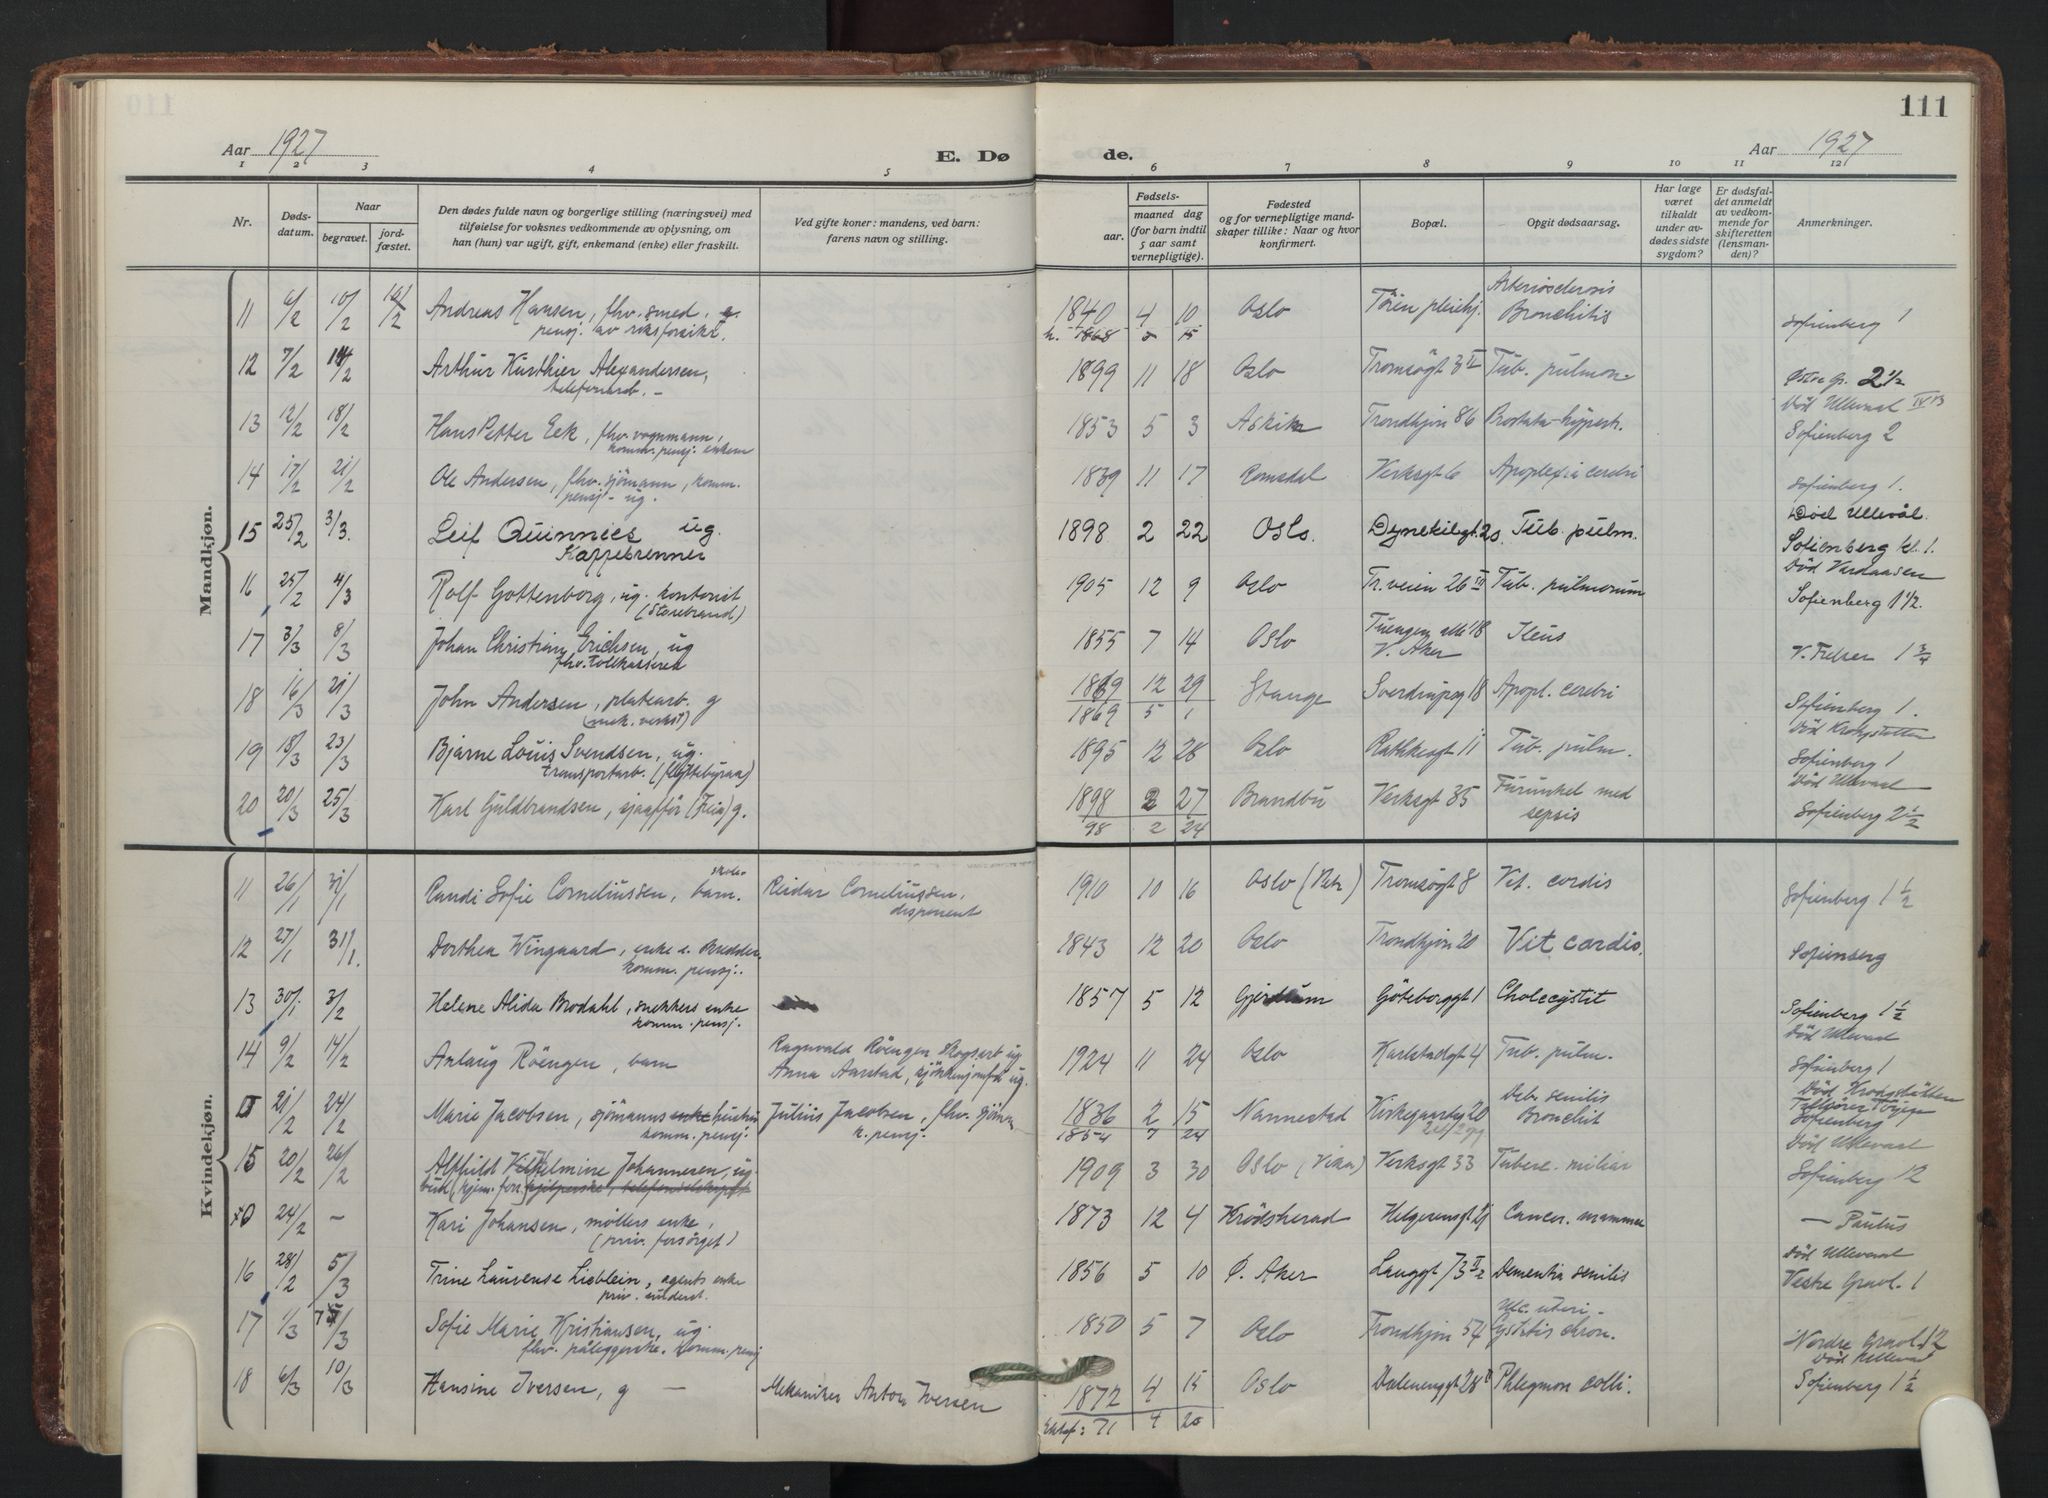 111
Aar 1927
E. Dø
de.
Aar 1927
1 2 3 4 5 6 7 8 9 10 11 12
Nr.
Døds-
datum.
Naar
begravet.
jord-
fæstet.
Den dødes fulde navn og borgerlige stilling (næringsvei) med
tilføielse for voksnes vedkommende av oplysning, om
han (hun) var ugift, gift, enkemand (enke) eller fraskilt.
Ved gifte koner: mandens, ved barn:
farens navn og stilling.
Fødsels-
aar.
maaned dag
(for barn indtil
5 aar samt
vernepligtige).
Fødested
og for vernepligtige mand-
skaper tillike: Naar og hvor
konfirmert.
Bopæl.
Opgit dødsaarsag.
Har læge
været
tilkaldt
under av-
dødes sidste
sygdom?
Er dødsfal-
det anmeldt
av vedkom-
mende for
skifteretten
(lensman-
den)?
Anmerkninger.
Mandkjøn.
11 6/2 10/2 10/2 Andreas Hansen, fhv. smed. g. 1840 4 10 Oslo Tøien pleiehj. Arteriosclerosis
pensj. av riksforsikr. h. 1868 Bronchitis Sofienberg 1
12 7/2 14/2 Arthur Kurthier Alexandersen, 1899 11 18 Oslo Tromsøgt 3 II Tub. pulmon. Østre Gr. 2 1/2
telefonarb. -
13 12/2 18/2 Hans Petter Eek, fhv. vognmann, 1853 5 3 Askim Trondhjvn 86 Prostata-hypertr. Død Ullevaal
komm. pensj. enkem Sofienberg 2
14 17/2 21/2 Ole Andersen, fhv. sjømann, komm. 1839 11 17 Romsdal Verksgt 6 Apoplexia cerebri
pensj - ug. Sofienberg 1.
15 25/2 3/3. Leif Quinnies ug. 1898 2 22 Oslo. Dynekilgt. 20. Tub. pulm. Død Ullevål.
Kaffebrenner Sofienberg kl. 1.
16 25/2 4/3 Rolf Gottenborg, ug. kontorist 1905 12 9 Oslo Tr. veien 26 Tub. pulmonum Død Vardaasen
(Storebrand) Sofienberg 1 1/2.
17 3/3 8/3 Johan Christian Erichsen, ug 1855 7 14 Oslo Tuengen allé 18 Ileus
fhv. tolkasserer V. Aker V. Frelser 1 3/4
18 16/3 21/3 John Andersen, platearb. g 1869 12 29 Stange Sverdrupsg 18 Apopl. cerebri
(mek. verkst) 1869 5 1 Sofienberg 1.
19 18/3 23/3 Bjarne Louis Svendsen, ug. 1895 12 28 Oslo Rathkesgt 11 Tub. pulm. Død Krohgstøtten
transportarb. (flyttebyraa) Sofienberg 1
20 20/3 25/3 Karl Guldbrandsen, sjaafför (Freia) g. 1898 2 27 Brandbu Verksgt 35 Furunkel med Død Ullevaal
98 2 24 sepsis Sofienberg 2 1/2
Kvindekjøn.
11 26/1 31/1 Randi Sofie Corneliussen, skole-barn. Reidar Corneliussen, 1910 10 16 Oslo (Petr) Tromsøgt 8 Vit. cordis
disponent Sofienberg 1 1/2
12 27/1 31/1. Dorthea Wingaard, enke 1843 12 20 Oslo Trondhjvn 20 Vit cordis.
komm. pensj. Sofienberg
13 30/1 3/2 Helene Alida Brodahl, snekkers enke 1857 5 12 Gjerdrum Göteborggt 1 Cholecystit
komm. pensj. Sofienberg 1 1/2
14 9/2 14/2 Anlaug Röengen, barn Ragnvald Röengen Skogsarb ug. 1924 11 24 Oslo Karlstadgt 4 Tub. pulm. Død Ullevaal
Anna Aarstad, kjökkenjomfr ug. Sofienberg 1
0 21/2 24/2 Marie Jacobsen, sjømanns enke hustru Julius Jacobsen, fhv. sjöm. 1836 2 15 Nannestad Kirkegaardsg 20 Deb. senilis Død Krohgstøtten
komm. pensj. k. pensj. 1854 7 24 Bronchit Sofienberg
15 20/2 26/2 Alfhild Vilhelmine Johannesen, ug. 1909 3 30 Oslo (Vika) Verksgt 33 Tuberc. miliar Død Ullevaal
Sofienberg 12
0 24/2 - Kari Johansen, møllers enke, 1873 12 4 Krödsherad Helgesensgt Cancer. mammae - Paulus
(priv. forsörget)
16 28/2 5/3 Trine Laurense Lieblein, agents enke 1856 5 10 Ø. Aker Langgt 73 Dementia senilis Død Ullevaal
priv. underst. Vestre Gravl. 1
17 1/3 7/3 Sofie Marie Kristiansen, ug. 1850 5 7 Oslo Trondhjvn 54 Ulc. uteri -
fhv. påleggerske. komm. pensj Cystitis chron. Nordre Gravl 12
18 6/3 10/3 Hansine Iversen, g - Mekaniker Anton Iversen 1872 4 15 Oslo Dælenenggt 28 Phlegmon colli. Død Ullevaal
71 4 20 Sofienberg 1 1/2